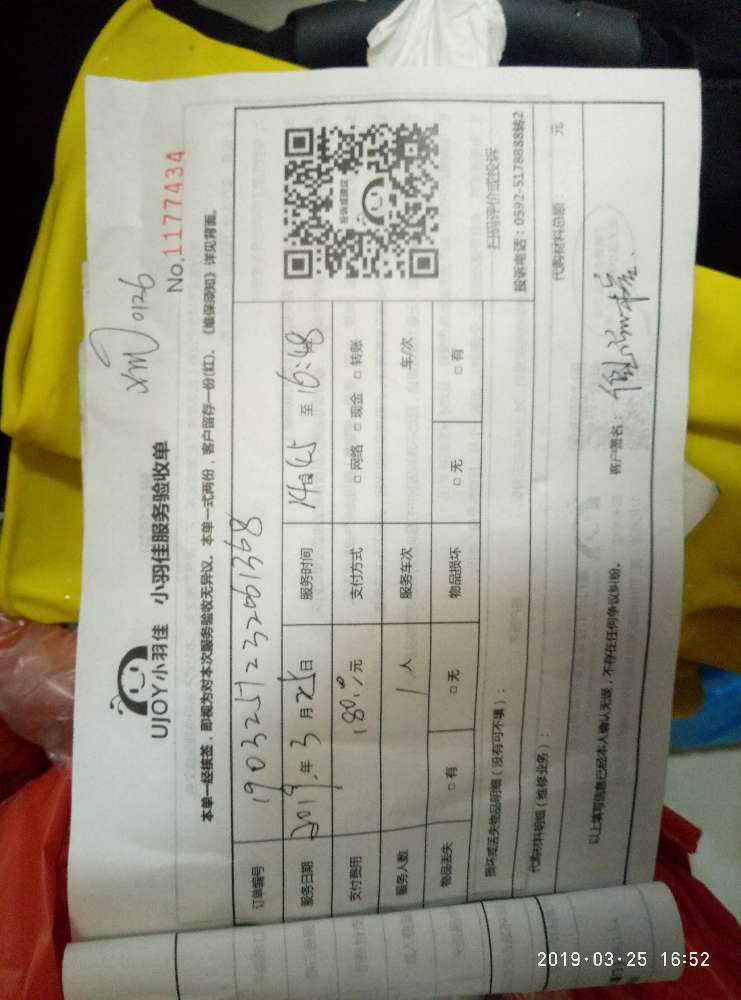 xm 0126
UJOY小羽佳 小羽佳服务验收单
No.1177434
本单一经核签，即视为对本次服务验收无异议。本单一式两份，客户留存一份(红)。《维保须知》详见背面。
订单编号 19032512320
服务日期 2019年 3 月 25 日 服务时间 至 16:48
支付费用 180 元 支付方式 □ 网络 □ 现金 □ 转账
服务人数 1 人 服务车次 车/次
物品丢失 □ 有 □ 无 物品损坏 □ 无 □ 有
投诉或建议
扫码评价或投诉
投诉电话：0592-5178888转2
损坏或丢失物品明细（没有可不填）：
代购材料明细（维修业务）： 代购材料总额： 元
以上填写信息已经本人确认无误，不存在任何争议纠纷。 客户签名：
2019-03-25 16:52